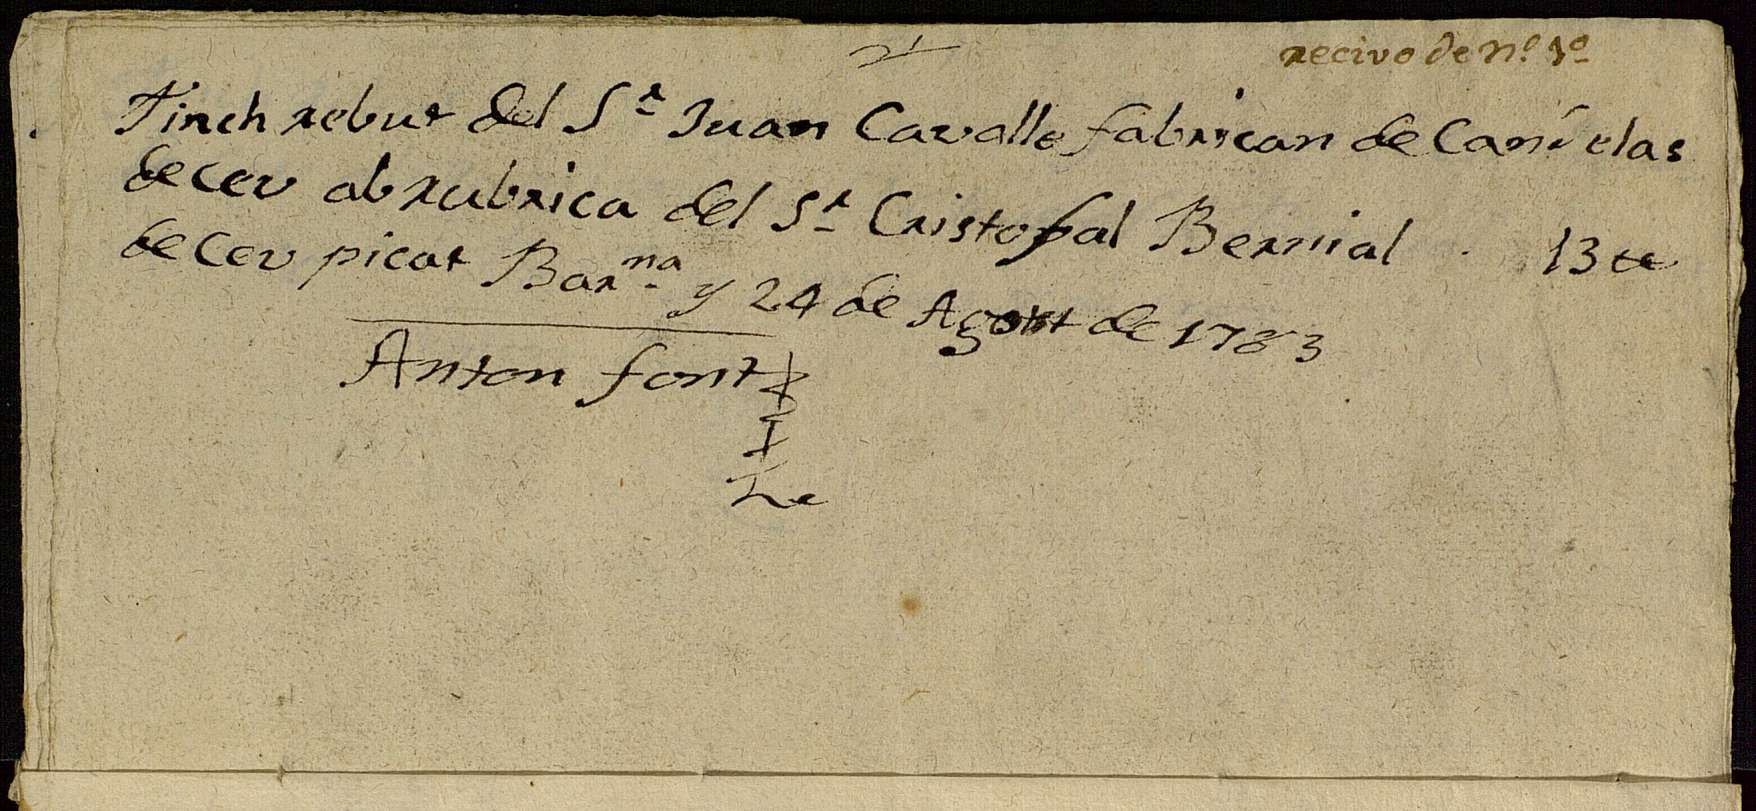 recivo de nº 1º
Tinch rebut del Sr Juan Cavalle fabrican de Candelas
de Cev ab rubrica del Sr Cristofal Bernial . 13
de Cev picat Barna y 24 de Agost de 1783
Anton font